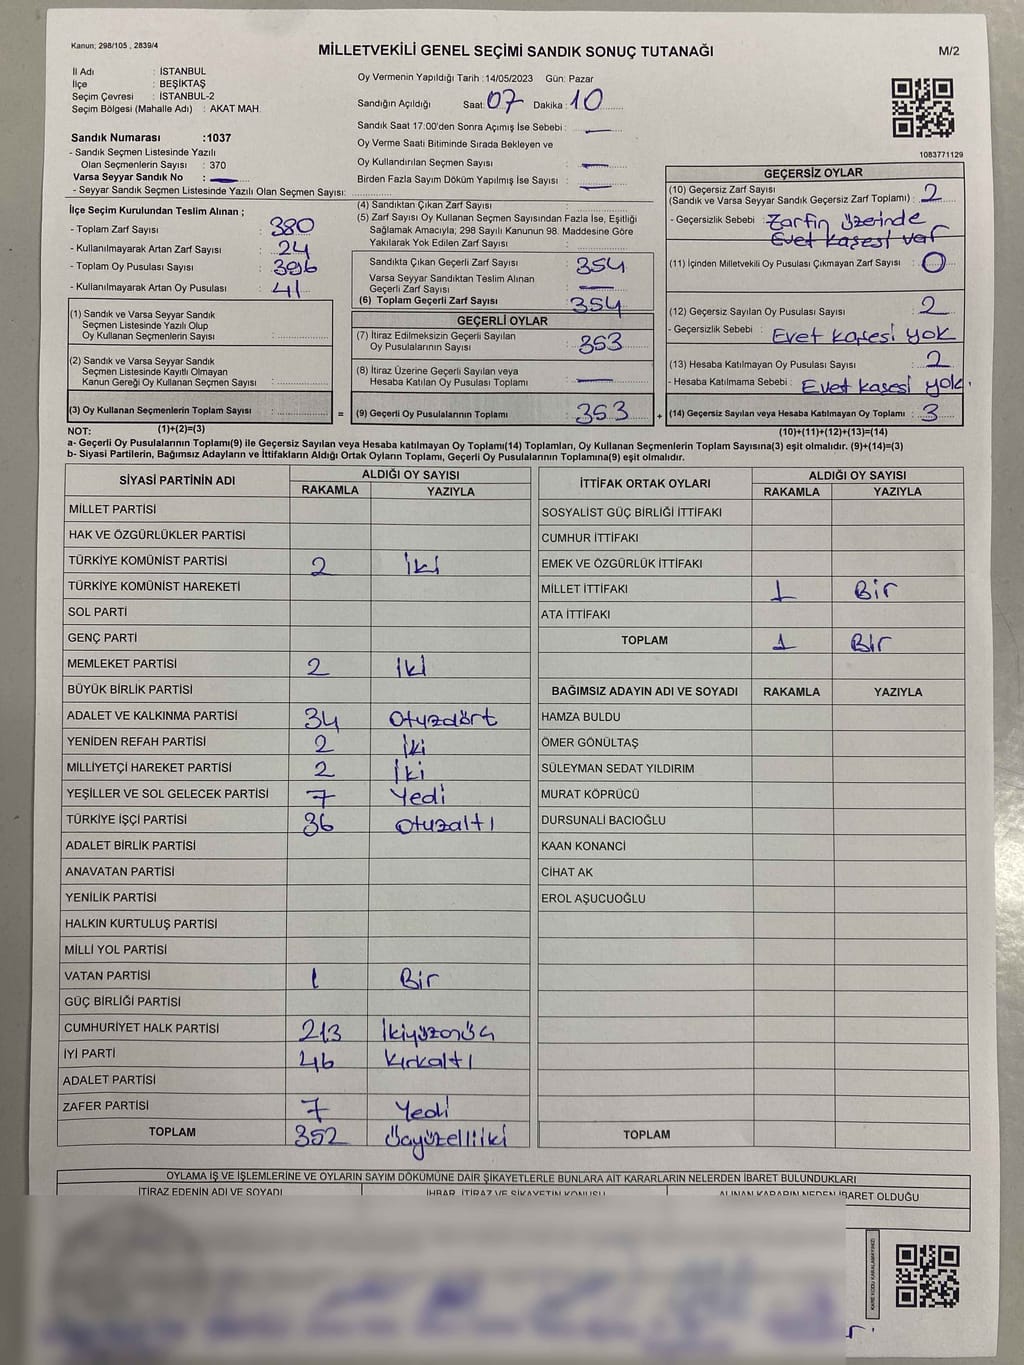 Kanun; 298/105 , 2839/4
MİLLETVEKİLİ GENEL SEÇİMİ SANDIK SONUÇ TUTANAĞI
M/2
İl Adı : İSTANBUL
İlçe : BEŞİKTAŞ
Seçim Çevresi : İSTANBUL-2
Seçim Bölgesi (Mahalle Adı) : AKAT MAH.
Sandık Numarası :1037
- Sandık Seçmen Listesinde Yazılı
Olan Seçmenlerin Sayısı : 370
Varsa Seyyar Sandık No :
- Seyyar Sandık Seçmen Listesinde Yazılı Olan Seçmen Sayısı:
Oy Vermenin Yapıldığı Tarih :14/05/2023 Gün: Pazar
Sandığın Açıldığı Saat: 07 Dakika: 10
Sandık Saat 17:00'den Sonra Açımış İse Sebebi : —
Oy Verme Saati Bitiminde Sırada Bekleyen ve
Oy Kullandırılan Seçmen Sayısı : —
Birden Fazla Sayım Döküm Yapılmış İse Sayısı : —
1083771129
İlçe Seçim Kurulundan Teslim Alınan ;
- Toplam Zarf Sayısı : 380
- Kullanılmayarak Artan Zarf Sayısı : 24
- Toplam Oy Pusulası Sayısı : 396
- Kullanılmayarak Artan Oy Pusulası : 41
(1) Sandık ve Varsa Seyyar Sandık
Seçmen Listesinde Yazılı Olup
Oy Kullanan Seçmenlerin Sayısı :
(2) Sandık ve Varsa Seyyar Sandık
Seçmen Listesinde Kayıtlı Olmayan
Kanun Gereği Oy Kullanan Seçmen Sayısı :
(3) Oy Kullanan Seçmenlerin Toplam Sayısı : =
(4) Sandıktan Çıkan Zarf Sayısı :
(5) Zarf Sayısı Oy Kullanan Seçmen Sayısından Fazla İse, Eşitliği
Sağlamak Amacıyla; 298 Sayılı Kanunun 98. Maddesine Göre
Yakılarak Yok Edilen Zarf Sayısı :
Sandıkta Çıkan Geçerli Zarf Sayısı : 354
Varsa Seyyar Sandıktan Teslim Alınan
Geçerli Zarf Sayısı : —
(6) Toplam Geçerli Zarf Sayısı : 354
GEÇERLİ OYLAR
(7) İtiraz Edilmeksizin Geçerli Sayılan
Oy Pusulalarının Sayısı : 353
(8) İtiraz Üzerine Geçerli Sayılan veya
Hesaba Katılan Oy Pusulası Toplamı : —
(9) Geçerli Oy Pusulalarının Toplamı : 353 +
GEÇERSİZ OYLAR
(10) Geçersiz Zarf Sayısı
(Sandık ve Varsa Seyyar Sandık Geçersiz Zarf Toplamı) : 2
- Geçersizlik Sebebi : Zarfın üzerinde
Evet kaşesi var
(11) İçinden Milletvekili Oy Pusulası Çıkmayan Zarf Sayısı : 0
(12) Geçersiz Sayılan Oy Pusulası Sayısı : 2
- Geçersizlik Sebebi : Evet kaşesi yok
(13) Hesaba Katılmayan Oy Pusulası Sayısı : 2
- Hesaba Katılmama Sebebi : Evet kaşesi yok.
(14) Geçersiz Sayılan veya Hesaba Katılmayan Oy Toplamı : 3
NOT: (1)+(2)=(3) (10)+(11)+(12)+(13)=(14)
a- Geçerli Oy Pusulalarının Toplamı(9) ile Geçersiz Sayılan veya Hesaba katılmayan Oy Toplamı(14) Toplamları, Oy Kullanan Seçmenlerin Toplam Sayısına(3) eşit olmalıdır. (9)+(14)=(3)
b- Siyasi Partilerin, Bağımsız Adayların ve İttifakların Aldığı Ortak Oyların Toplamı, Geçerli Oy Pusulalarının Toplamına(9) eşit olmalıdır.
SİYASİ PARTİNİN ADI ALDIĞI OY SAYISI
RAKAMLA YAZIYLA
MİLLET PARTİSİ
HAK VE ÖZGÜRLÜKLER PARTİSİ
TÜRKİYE KOMÜNİST PARTİSİ 2 İki
TÜRKİYE KOMÜNİST HAREKETİ
SOL PARTİ
GENÇ PARTİ
MEMLEKET PARTİSİ 2 İki
BÜYÜK BİRLİK PARTİSİ
ADALET VE KALKINMA PARTİSİ 34 Otuzdört
YENİDEN REFAH PARTİSİ 2 İki
MİLLİYETÇİ HAREKET PARTİSİ 2 İki
YEŞİLLER VE SOL GELECEK PARTİSİ 7 Yedi
TÜRKİYE İŞÇİ PARTİSİ 36 Otuzaltı
ADALET BİRLİK PARTİSİ
ANAVATAN PARTİSİ
YENİLİK PARTİSİ
HALKIN KURTULUŞ PARTİSİ
MİLLİ YOL PARTİSİ
VATAN PARTİSİ 1 Bir
GÜÇ BİRLİĞİ PARTİSİ
CUMHURİYET HALK PARTİSİ 213 İkiyüzonüç
İYİ PARTİ 46 Kırkaltı
ADALET PARTİSİ
ZAFER PARTİSİ 7 Yedi
TOPLAM 352 Üçyüzelliiki
İTTİFAK ORTAK OYLARI ALDIĞI OY SAYISI
RAKAMLA YAZIYLA
SOSYALİST GÜÇ BİRLİĞİ İTTİFAKI
CUMHUR İTTİFAKI
EMEK VE ÖZGÜRLÜK İTTİFAKI
MİLLET İTTİFAKI 1 Bir
ATA İTTİFAKI
TOPLAM 1 Bir
BAĞIMSIZ ADAYIN ADI VE SOYADI RAKAMLA YAZIYLA
HAMZA BULDU
ÖMER GÖNÜLTAŞ
SÜLEYMAN SEDAT YILDIRIM
MURAT KÖPRÜCÜ
DURSUNALİ BACIOĞLU
KAAN KONANCİ
CİHAT AK
EROL AŞUCUOĞLU
TOPLAM
OYLAMA İŞ VE İŞLEMLERİNE VE OYLARIN SAYIM DÖKÜMÜNE DAİR ŞİKAYETLERLE BUNLARA AİT KARARLARIN NELERDEN İBARET BULUNDUKLARI
İTİRAZ EDENİN ADI VE SOYADI İHBAR, İTİRAZ VE ŞİKAYETİN KONUSU ALINAN KARARIN NEDEN İBARET OLDUĞU
KARE KODU KARALAMAYINIZ!